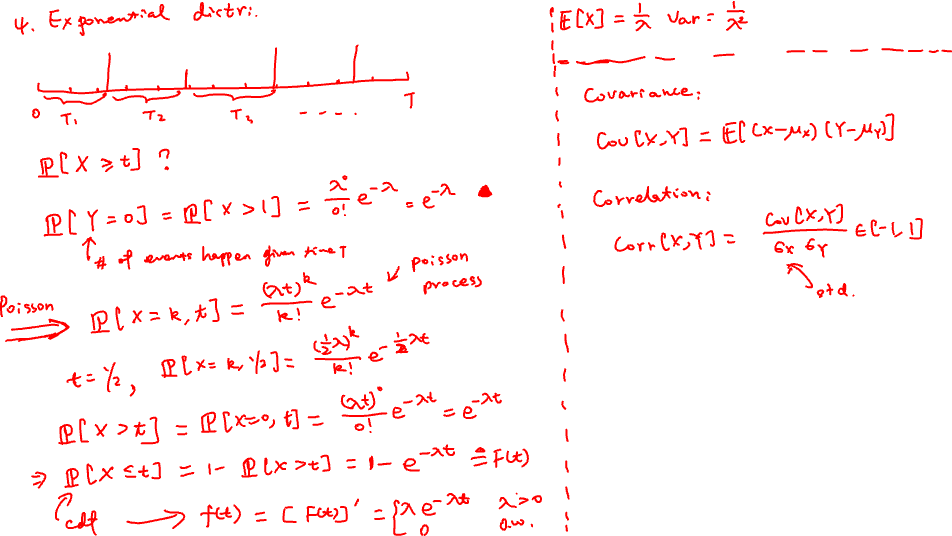 4. Exponential distri.
0 T₁ T₂ T₃ - - - - . T
ℙ[X ≥ t] ?
ℙ[Y = 0] = ℙ[X > 1] = λ⁰/0! e^{-λ} = e^{-λ}
# of events happen given time T
↙ Poisson process
Poisson ⟹ ℙ[X = k, t] = (λt)^k/k! e^{-λt}
t = 1/2, ℙ[X = k, 1/2] = (1/2 λ)^k/k! e^{-1/2 λt}
ℙ[X > t] = ℙ[X=0, t] = (λt)⁰/0! e^{-λt} = e^{-λt}
⇒ ℙ[X ≤ t] = 1 - ℙ[X > t] = 1 - e^{-λt} ≐ F(t)
cdf ⟶ f(t) = [F(t)]' = { λe^{-λt} λ>0
0 o.w.
𝔼[X] = 1/λ Var = 1/λ²
Covariance:
Cov[X,Y] = 𝔼[(X-μx)(Y-μY)]
Correlation:
Corr[X,Y] = Cov[X,Y]/σx σY ∈ [-1, 1]
std.